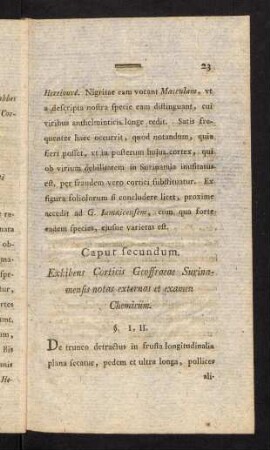 23
Herstoord. Nigritae eum vocant Masculum, vt
a descripta nostra specie eam distinguant, cui
viribus anthelminticis longe cedit. Satis fre-
quenter haec occurrit, quod notandum, quia
fieri posset, et in posterum huius cortex, qui
ob virium debilitatem in Surinamia inusitatus
est, per fraudem vero cortici substituatur. Ex
figura foliolorum si concludere licet, proxime
accedit ad G. Iamaicensem, cum qua forte
eadem species, eiusue varietas est.
Caput secundum.
Exhibens Corticis Geoffraeae Surina-
mensis notas externas et examen
Chemicum.
§. 1. II.
De trunco detractus in frusta longitudinalia
plana secatur, pedem et ultra longa, pollices
ali-
Cor-
He-